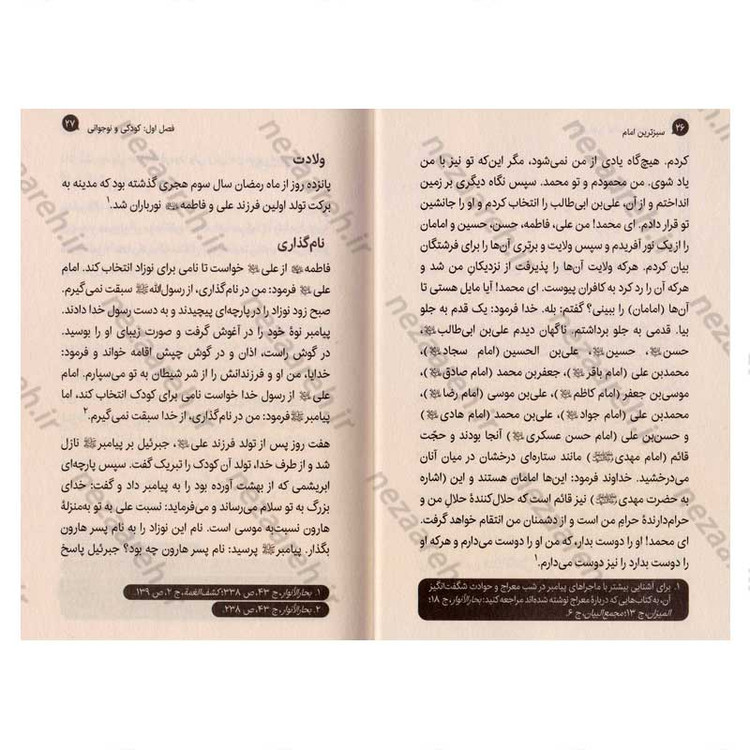 ۲۶ سبزترین امام
کردم. هیچ‌گاه یادی از من نمی‌شود، مگر این‌که تو نیز با من
یاد شوی. من محمودم و تو محمد. سپس نگاه دیگری بر زمین
انداختم و از آن، علی‌بن ابی‌طالب را انتخاب کردم و او را جانشین
تو قرار دادم. ای محمد! من علی، فاطمه، حسن، حسین و امامان
را از یک نور آفریدم و سپس ولایت و برتری آن‌ها را برای فرشتگان
بیان کردم. هرکه ولایت آن‌ها را پذیرفت از نزدیکان من شد و
هرکه آن را رد کرد به کافران پیوست. ای محمد! آیا مایل هستی تا
آن‌ها (امامان) را ببینی؟ گفتم: بله. خدا فرمود: یک قدم به جلو
بیا. قدمی به جلو برداشتم. ناگهان دیدم علی‌بن ابی‌طالب،
حسن، حسین، علی‌بن الحسین (امام سجاد)،
محمدبن علی (امام باقر)، جعفربن محمد (امام صادق)،
موسی‌بن جعفر (امام کاظم)، علی‌بن موسی (امام رضا)،
محمدبن علی (امام جواد)، علی‌بن محمد (امام هادی)
و حسن‌بن علی (امام حسن عسکری) آنجا بودند و حجّت
قائم (امام مهدی) مانند ستاره‌ای درخشان در میان آنان
می‌درخشید. خداوند فرمود: این‌ها امامان هستند و این (اشاره
به حضرت مهدی) نیز قائم است که حلال‌کنندهٔ حلالِ من و
حرام‌دارندهٔ حرام من است و از دشمنان من انتقام خواهد گرفت.
ای محمد! او را دوست بدار، که من او را دوست می‌دارم و هرکه او
را دوست بدارد را نیز دوست می‌دارم.۱
۱. برای آشنایی بیشتر با ماجراهای پیامبر در شب معراج و حوادث شگفت‌انگیز
آن، به کتاب‌هایی که دربارهٔ معراج نوشته شده‌اند مراجعه کنید: بحارالأنوار، ج ۱۸؛
المیزان، ج ۱۳؛ مجمع‌البیان، ج ۶.
فصل اول: کودکی و نوجوانی ۲۷
ولادت
پانزده روز از ماه رمضان سال سوم هجری گذشته بود که مدینه به
برکت تولد اولین فرزند علی و فاطمه نورباران شد.۱
نام‌گذاری
فاطمه از علی خواست تا نامی برای نوزاد انتخاب کند. امام
علی فرمود: من در نام‌گذاری، از رسول‌الله ﷺ سبقت نمی‌گیرم.
صبح زود نوزاد را در پارچه‌ای پیچیدند و به دست رسول خدا دادند.
پیامبر نوهٔ خود را در آغوش گرفت و صورت زیبای او را بوسید.
در گوش راست، اذان و در گوش چپش اقامه خواند و فرمود:
خدایا، من او و فرزندانش را از شر شیطان به تو می‌سپارم. امام
علی از رسول خدا خواست نامی برای کودک انتخاب کند، اما
پیامبر ﷺ فرمود: من در نام‌گذاری، از خدا سبقت نمی‌گیرم.۲
هفت روز پس از تولد فرزند علی، جبرئیل بر پیامبر ﷺ نازل
شد و از طرف خدا، تولد آن کودک را تبریک گفت. سپس پارچه‌ای
ابریشمی که از بهشت آورده بود را به پیامبر داد و گفت: خدای
بزرگ به تو سلام می‌رساند و می‌فرماید: نسبت علی به تو به‌منزلهٔ
هارون نسبت‌به موسی است. نام این نوزاد را به نام پسر هارون
بگذار. پیامبر ﷺ پرسید: نام پسر هارون چه بود؟ جبرئیل پاسخ
۱. بحارالأنوار، ج ۴۳، ص ۳۳۸؛ کشف‌الغمة، ج ۲، ص ۱۳۹.
۲. بحارالأنوار، ج ۴۳، ص ۲۳۸.
nezaareh.ir